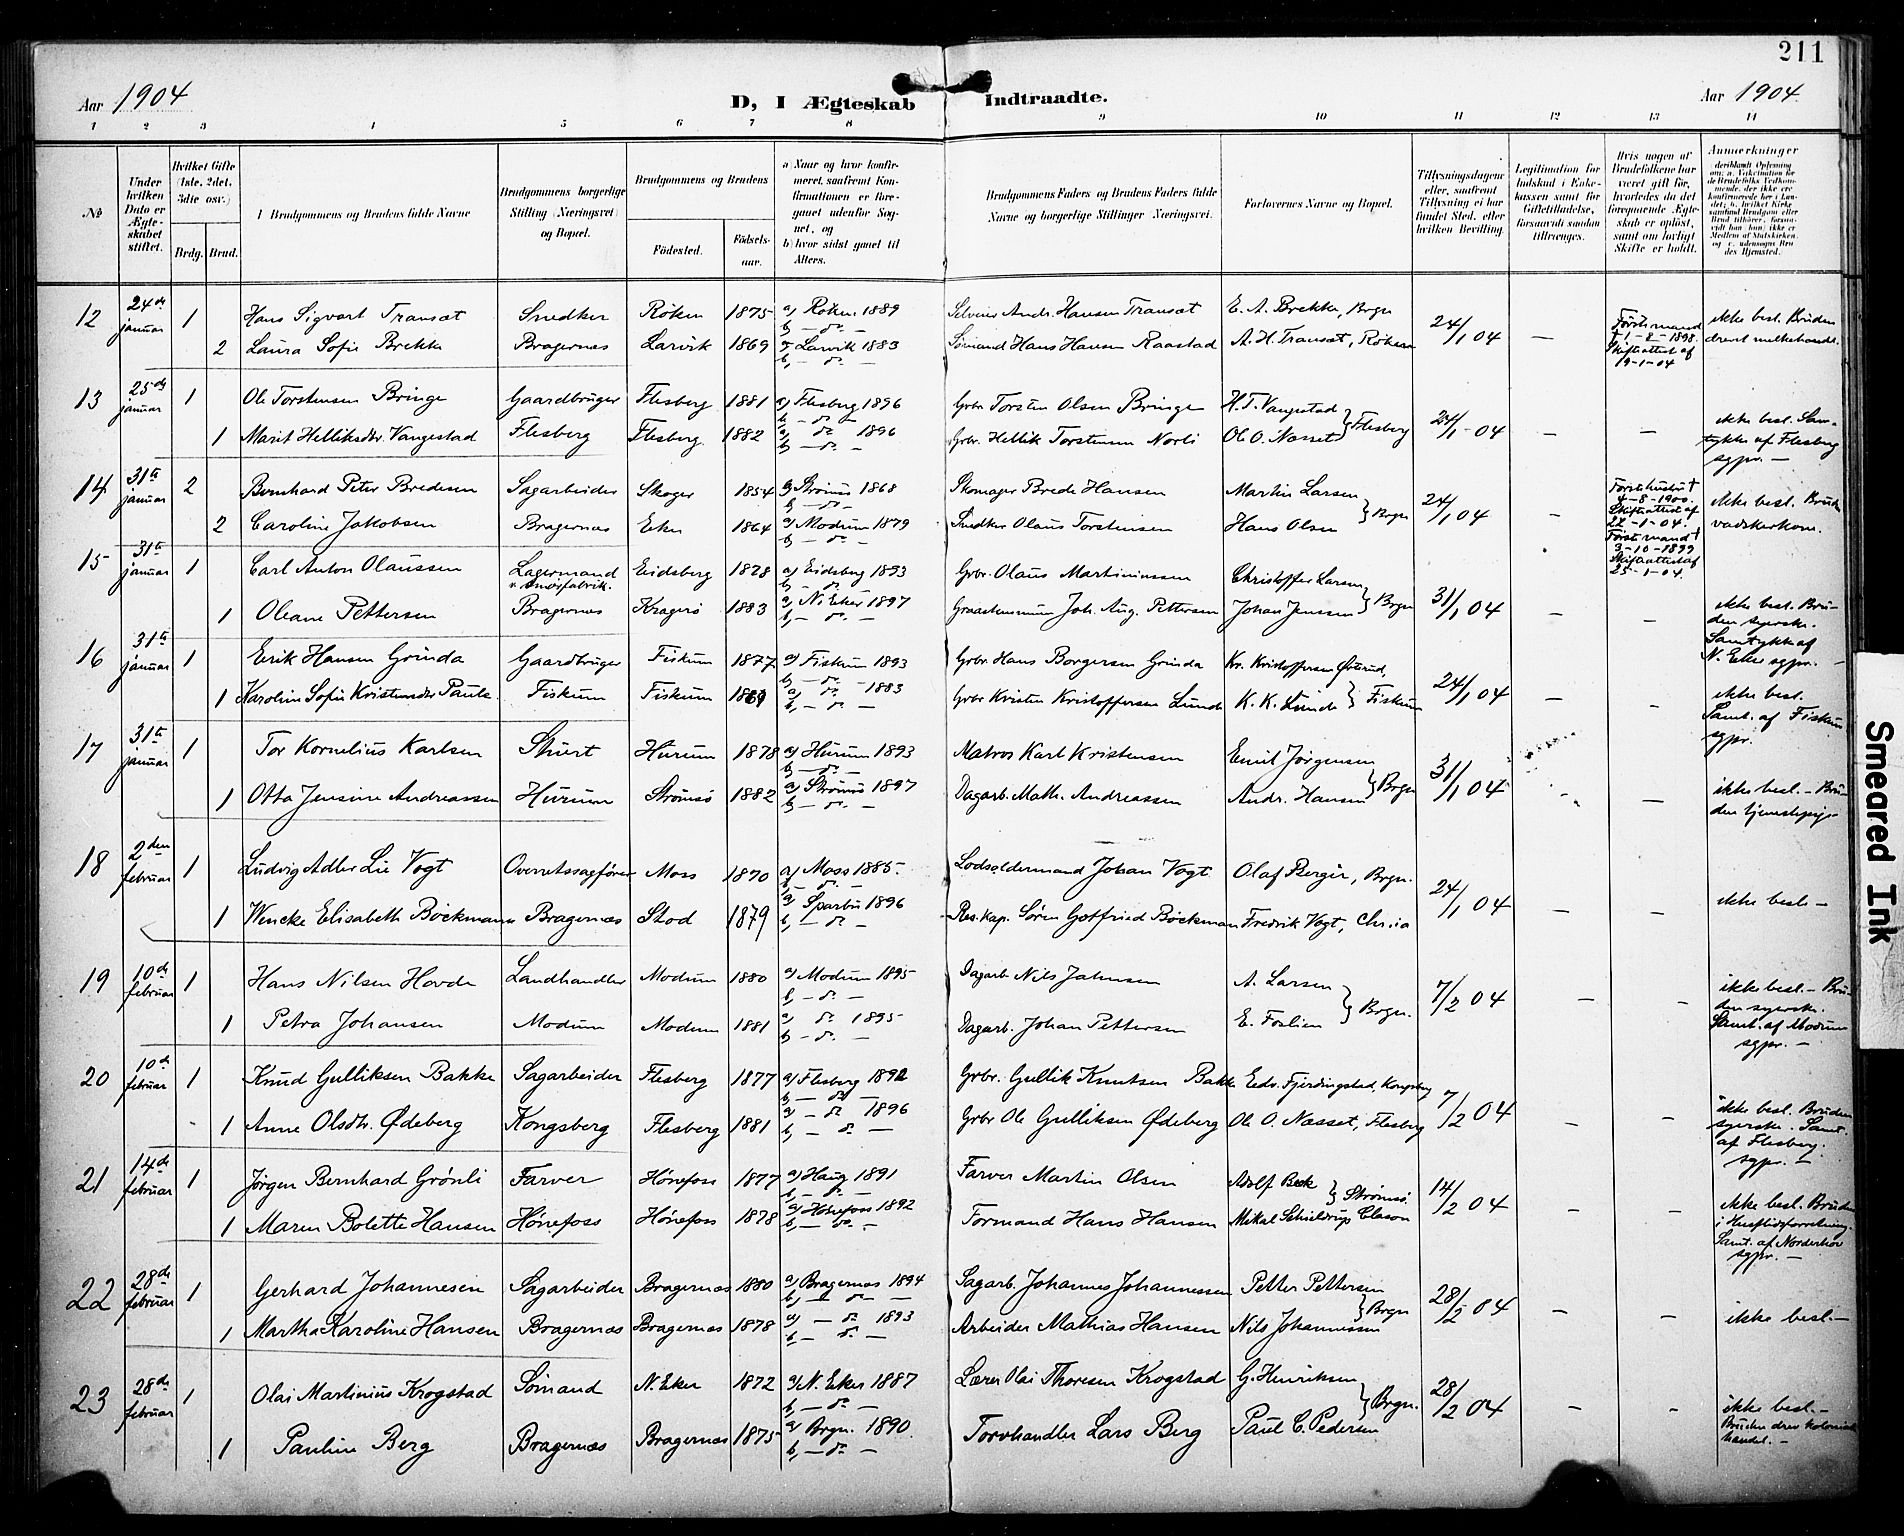 211
Aar 1904
D, I Ægteskab Indtraadte.
Aar 1904.
1 2 3 4 5 6 7 8 9 10 11 12 13 14
No
Under hvilken Dato er Ægteskabet stiftet.
Hvilket Gifte (1ste, 2det, 3die osv.)
Brdg. Brud.
Brudgommens og Brudens fulde Navne
Brudgommens borgerlige Stilling (Næringsvei) og Bopæl.
Brudgommens og Brudens
Fødested. Fødselsaar.
a) Naar og hvor konfirmeret, saafremt Konfirmationen er foregaaet udenfor Sognet, og
b) hvor sidst gaaet til Alters.
Brudgommens Faders og Brudens Faders fulde Navne og borgerlige Stillinger (Næringsvei.
Forlovernes Navne og Bopæl.
Tillysningsdagene eller, saafremt Tillysning ei har fundet Sted, efter hvilken Bevilling.
Legitimation for Indskud i Enkekassen samt for Giftetilladelse, forsaavidt saadan tiltrænges.
Hvis nogen af Brudefolkene har været gift før, hvorledes da det foregaaende Ægteskab er opløst, samt om lovligt Skifte er holdt.
Anmærkninger
12 24de januar 1 Hans Sigvart Transæt Snedker Røken 1875 a) Røken 1889 Selveier Andr. Hansen Transæt E. A. Brekke, Brgn 24/1 04 — Første mand † 1-8-1898. Skifteattest af 19-1-04 ikke besl. Bruden drevet melkehandel.
2 Laura Sofie Brekke Bragernæs Larvik 1869 a) Larvik 1883 Sømand Hans Hansen Raastad A. H. Transæt, Røken
13 25de januar 1 Ole Torstensen Bringe Gaardbruger Flesberg 1881 a) Flesberg 1896 Grbr Torsten Olsen Bringe H. T. Vangestad } Flesberg 24/1-04 — — ikke besl. Samtykke af Flesberg sgpr. —
1 Marit Helliksdtr. Vangestad Flesberg Flesberg 1882 a) — do — 1896 Grbr. Hellik Torstensen Norli Ole O. Næsset
14 31te januar 2 Bernhard Peter Bredesen Sagarbeider Skoger 1854 a) Strømsø 1868 Skomager Brede Hansen Martin Larsen } Brgn 24/1 04 — Første hustru † 4-8-1900. Skifteattest af 22-1-04. Første mand † 3-10-1899 Skifteattest af 25-1-04. ikke besl. Bruden vadskerkone.
2 Caroline Jakobsen Bragernæs Eker 1864 a) Modum 1879 Snedker Olaus Torstensen Hans Olsen
15 31te januar 1 Carl Anton Olaussen Lagermand v. smørfabrik. Eidsberg 1878 a) Eidsberg 1893 Grbr. Olaus Martiniussen Christoffer Larsen } Brgn 31/1 04 — — ikke besl. Bruden syerske. Samtykke af N. Eker sgpr. —
1 Oleane Pettersen Bragernæs Kragerø 1883 a) N. Eker 1897 Joh. Aug. Pettersen Johan Jenssen
16 31te januar 1 Erik Hansen Grinda Gaardbruger Fiskum 1877 a) Fiskum 1893 Grbr Hans Borgersen Grinda Kr. Kristoffersen } Fiskum 24/1 04 — — ikke besl. Samt. af Fiskum sgpr.
1 Karoline Sofie Kristensdtr Fiskum Fiskum 1869 a) — do — 1883 Grbr Kristen Kristoffersen Lunde K. K. Lunde
17 31te januar 1 Tor Kornelius Karlsen Stuert Hurum 1878 a) Hurum 1893 Matros Karl Kristensen Emil Jørgensen } Brgn 31/1 04 — ikke besl. — Bruden tjenestepige
1 Otta Jensine Andreassen Hurum Strømsø 1882 a) Strømsø 1897 Dagarb. Math. Andreassen Andr. Hansen
18 2den februar 1 Ludvig Adler Lie Vogt Overretssagfører Moss 1870 a) Moss 1885. Lodsoldermand Johan Vogt Olaf Berger, Brgn. 24/1 04 — — ikke besl. —
1 Wencke Elisabeth Bøckmann Bragernæs Stod 1879 a) Sparbu 1896 Res. kap. Søren Gotfried Bøckman Fredrik Vogt, Chr.ia
19 10de februar 1 Hans Nilsen Hovde Landhandler Modum 1880 a) Modum 1895 Dagarb Nils Jahnsen A. Larsen } Brgn. 7/2 04 — — ikke besl. — Bruden syerske. Samt. af Modum sgpr. —
1 Petra Johansen Modum Modum 1881 a) — do — 1895 Dagarb. Johan Pettersen E. Foslien
20 10de februar 1 Knud Gulliksen Bakke Sagarbeider Flesberg 1877 a) Flesberg 1892 Grbr. Gullik Knutsen Bakke Edv. Fjerdingstad, Kongsberg 7/2 04 — — ikke besl. Bruden syerske. Samt. af Flesberg. sgpr. —
1 Anne Olsdtr. Ødeberg Kongsberg Flesberg 1881 a) — do — 1896 Grbr Ole Gulliksen Ødeberg Ole O. Næsset, Flesberg
21 14de februar 1 Jørgen Bernhard Grønli Farver Hønefoss 1877 a) Haug 1891 Farver Martin Olsen Adolf Beck } Strømsø 14/2 04 — — ikke besl. Bruden i Husflidsforretning. Samt. af Norderhov sgpr. —
1 Maren Bolette Hansen Hønefoss Hønefoss 1878 a) Hønefoss 1892 Formand Hans Hansen Mikal Schieldrup Clason
22 28de februar 1 Gerhard Johannesen Sagarbeider Bragernæs 1880 a) Bragernæs 1894 Sagarb. Johannes Johannessen Petter Pettersen } Brgn 28/2 04 — — ikke besl. —
1 Martha Karoline Hansen Bragernæs Bragernæs 1878 a) — do — 1893 Arbeider Mathias Hansen Nils Johannessen
23 28de februar 1 Olai Martinius Krogstad Sømand N. Eker 1872 a) N. Eker 1887 Lærer Olai Thoresen Krogstad G. Henriksen } Brgn. 28/2 04 — — ikke besl. — Bruden drev kolonialhandel. —
1 Pauline Berg Bragernæs Bragernæs 1875 a) Brgn. 1890. Torvhandler Lars Berg Paul C. Pedersen
Smeared Ink